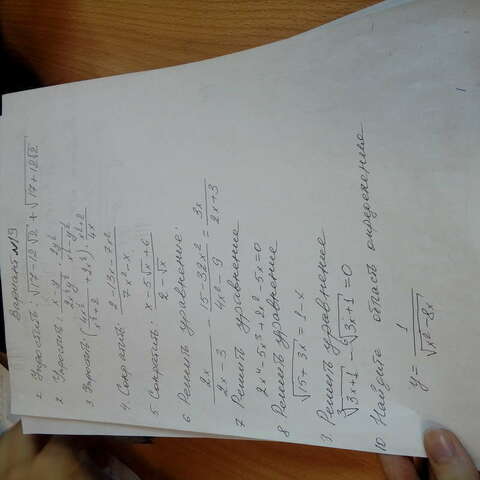 Вариант №19
1 Упростить: √(17-12√2) + √(17+12√2)
2 Упростить: (x-y)/(2x²y²) · 2y²/(x²-y²)
3 Упростить: (4x³/(x²+2) + 2x³) · (x²+2)/4x
4. Сократить: (2-13x-7x²)/(7x²-x)
5. Сократить: (x-5√x+6)/(2-√x)
6 Решить уравнение:
2x/(2x-3) - (15-32x²)/(4x²-9) = 3x/(2x+3)
7. Решить уравнение
2x⁴-5x³+2x²-5x=0
8. Решить уравнение
√(15+3x) = 1-x
9. Решить уравнение
³√(3x+1) - ⁶√(3x+1) = 0
10. Найдите область определения
y = 1/√(x²-8x)